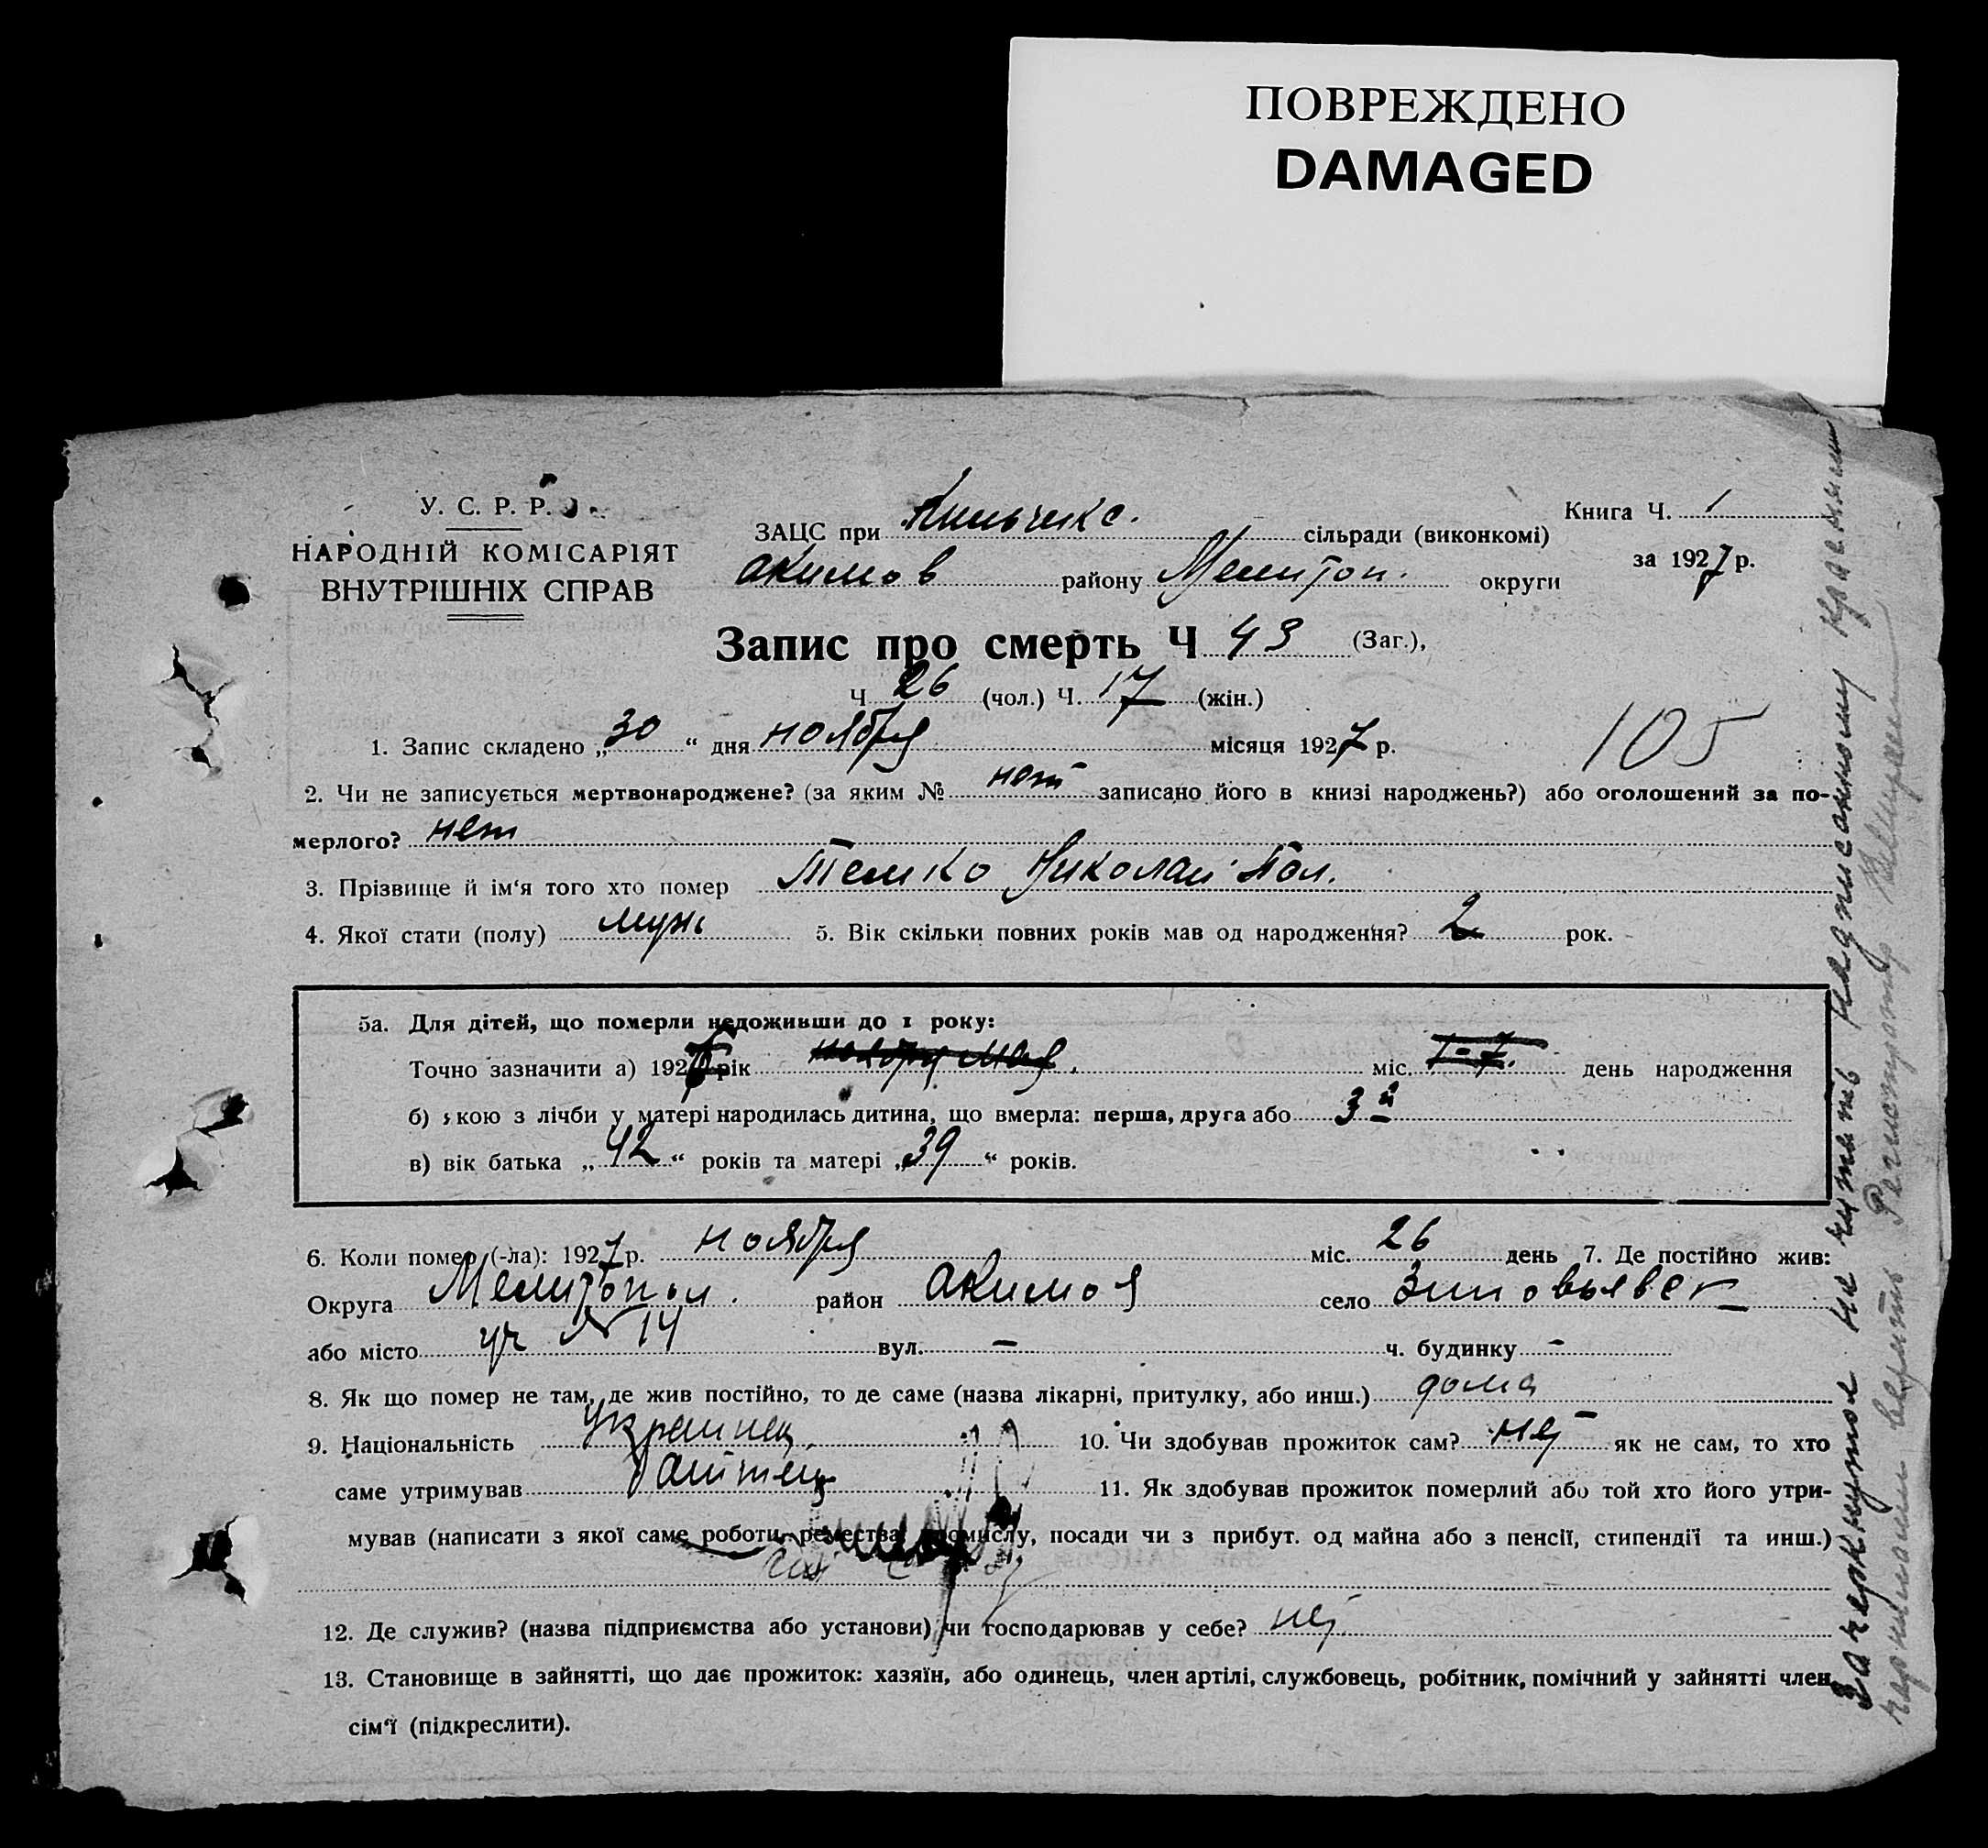 ПОВРЕЖДЕНО
DAMAGED
У. С. Р. Р.
НАРОДНІЙ КОМІСАРІЯТ
ВНУТРІШНІХ СПРАВ
ЗАЦС при сільради (виконкомі)
акимов району Мелитоп. округи
Книга Ч. 1
за 1927 р.
Запис про смерть Ч 43 (Заг.),
Ч 26 (чол.) Ч. 17 (жін.)
1. Запис складено „30“ дня ноября місяця 1927 р.
105
2. Чи не записується мертвонароджене? (за яким № нет записано його в книзі народжень?) або оголошений за по-
мерлого? нет
3. Прізвище й ім‘я того хто помер Темко Николай
4. Якої стати (полу) муж 5. Вік скільки повних років мав од народження? 2 рок.
5а. Для дітей, що померли недоживши до 1 року:
Точно зазначити а) 192 рік ноября мая міс. день народження
б) якою з лічби у матері народилась дитина, що вмерла: перша, друга або 3й
в) вік батька „42“ років та матері „39“ років.
6. Коли помер (-ла): 1927 р. ноября міс. 26 день 7. Де постійно жив:
Округа Мелитопол. район акимов село
або місто уч № 14 вул. – ч. будинку –
8. Як що помер не там, де жив постійно, то де саме (назва лікарні, притулку, або инш.) дома
9. Національність украинец 10. Чи здобував прожиток сам? нет як не сам, то хто
саме утримував 11. Як здобував прожиток померлий або той хто його утри-
мував (написати з якої саме роботи, ремества, промислу, посади чи з прибут. од майна або з пенсії, стипендії та инш.)
12. Де служив? (назва підприємства або установи) чи господарював у себе? нет
13. Становище в зайнятті, що дає прожиток: хазяїн, або одинець, член артілі, службовець, робітник, помічний у зайнятті член
сім‘ї (підкреслити).
Зачеркнутое не читать надписанному
чернилами верить Регистратор